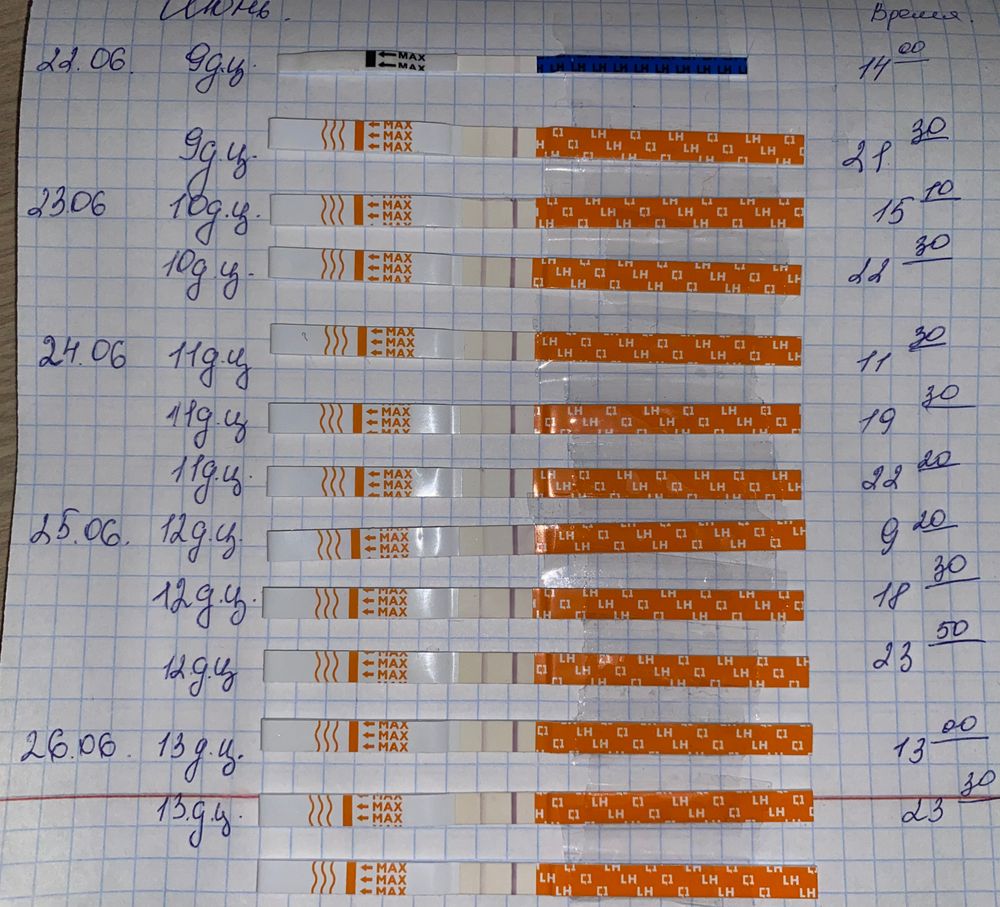 Июнь. Время.
22.06. 9д.ц. ←MAX ←MAX LH LH LH LH LH LH LH LH LH LH 14 00
9д.ц. ←MAX ←MAX ←MAX C1 LH C1 LH C1 LH LH C1 LH C1 LH 21 30
23.06 10д.ц. ←MAX ←MAX ←MAX C1 LH C1 LH C1 LH 15 10
10д.ц. ←MAX ←MAX ←MAX LH C1 LH C1 LH C1 22 30
24.06 11д.ц ←MAX ←MAX ←MAX LH C1 LH C1 LH C1 LH 11 30
11д.ц ←MAX ←MAX ←MAX C1 LH C1 LH C1 LH 19 30
11д.ц. ←MAX ←MAX ←MAX LH C1 LH C1 LH C1 LH 22 20
25.06. 12д.ц. ←MAX ←MAX C1 LH C1 LH C1 LH 9 20
12д.ц. ←MAX ←MAX ←MAX C1 LH C1 LH C1 LH 18 30
12д.ц ←MAX ←MAX ←MAX C1 LH C1 LH C1 LH 23 50
26.06. 13д.ц. ←MAX ←MAX ←MAX LH C1 LH C1 LH C1 13 00
13.д.ц. ←MAX ←MAX C1 LH C1 LH C1 LH 23 30
←MAX ←MAX ←MAX C1 LH C1 LH C1 LH